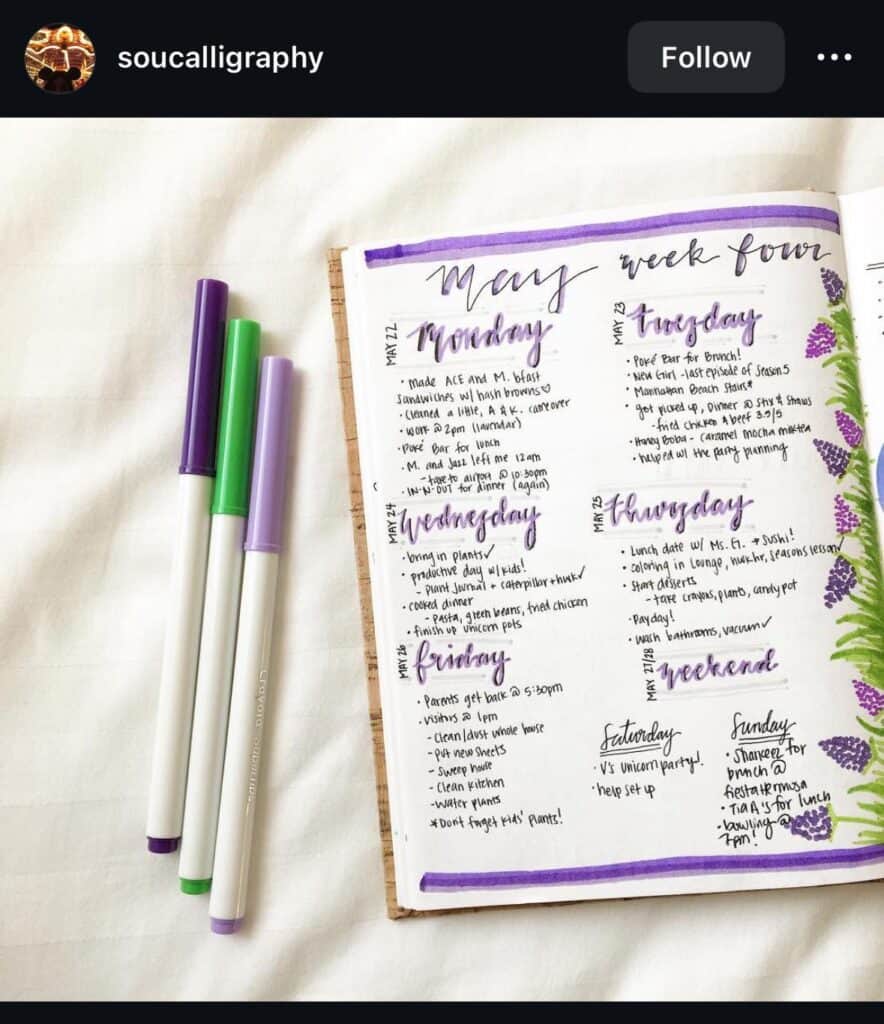 soucalligraphy
Follow
may week four
MAY 22
Monday
• Made ACE and M. bfast
sandwiches w/ hash browns♡
• cleaned a little, A & K. came over
• work @ 2pm (lavendar)
• Poké Bar for lunch
• M. and Jazz left me 12am
- take to airport @ 10:30pm
• IN-N-OUT for dinner (again)
MAY 23
tuesday
• Poké Bar for Brunch!
• New Girl - last episode of Season 5
• Manhattan Beach Stairs*
• got picked up, Dinner @ Stix & Straws
- fried chicken & beef 3.5/5
• Honey Boba - caramel mocha milktea
• helped w/ the party planning
MAY 24
wednesday
• bring in plants✓
• productive day w/ kids!
- Plant Journal + caterpillar + hwk✓
• cooked dinner
- pasta, green beans, fried chicken
• finish up unicorn pots
MAY 25
thursday
• Lunch date w/ Ms. G. + Sushi!
• coloring in lounge, hwk hr, seasons lesson✓
• start desserts
- take crayons, plants, candy pot
• Payday!
• wash bathrooms, vacuum✓
MAY 26
friday
• Parents get back @ 5:30pm
• visitors @ 1pm
- Clean/dust whole house
- Put new sheets
- Sweep house
- Clean kitchen
- Water plants
*Dont forget kids' plants!
MAY 27/28
weekend
Saturday
• V's unicorn party!
• help set up
Sunday
• Sharkeez for
brunch @
fiesta Hermosa
• Tia A's for lunch
- bowling @
7pm!
Crayola